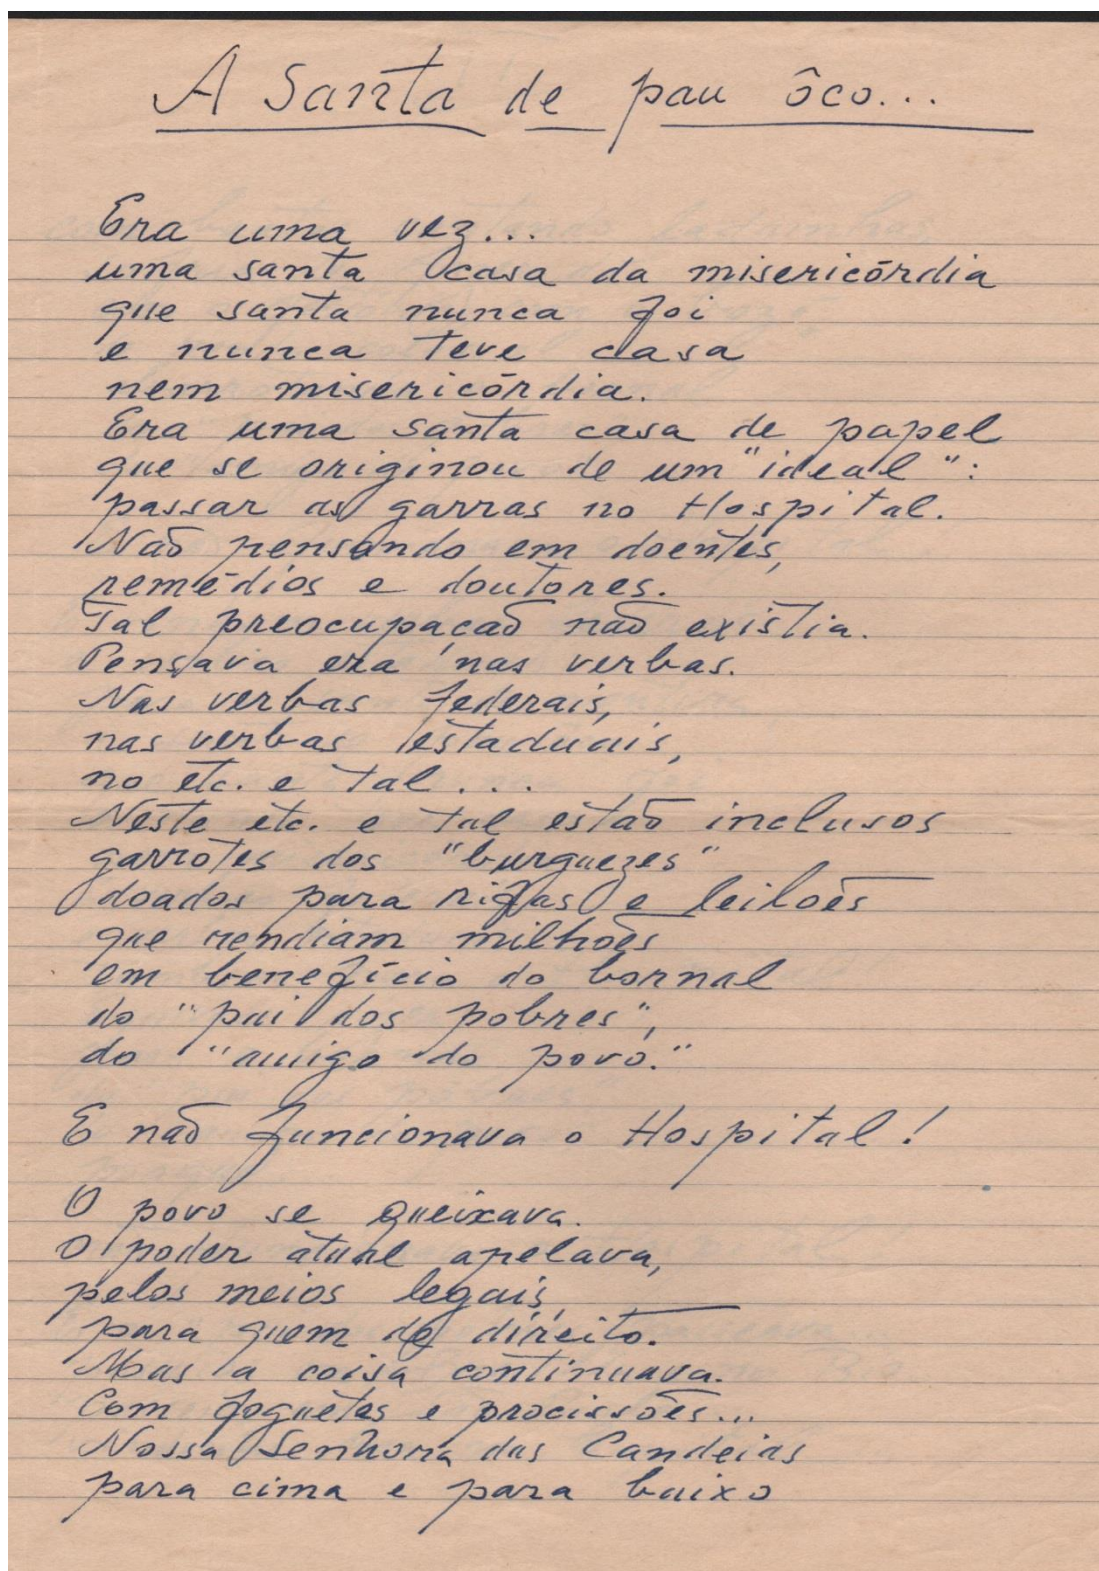 A Santa de pau ôco...
Era uma vez...
uma santa casa da misericórdia
que santa nunca foi
e nunca teve casa
nem misericórdia.
Era uma santa casa de papel
que se originou de um "ideal":
passar as garras no Hospital.
Não pensando em doentes,
remédios e doutores.
Tal preocupação não existia.
Pensava era nas verbas.
Nas verbas federais,
nas verbas estaduais,
no etc. e tal...
Neste etc. e tal estão inclusos
garrotes dos "burguezes"
doados para rifas e leilões
que rendiam milhões
em benefício do bornal
do "pai dos pobres",
do "amigo do povo."
E não funcionava o Hospital!
O povo se queixava.
O poder atual apelava,
pelos meios legais,
para quem de direito.
Mas a coisa continuava.
Com foguetes e procissões...
Nossa Senhora das Candeias
para cima e para baixo